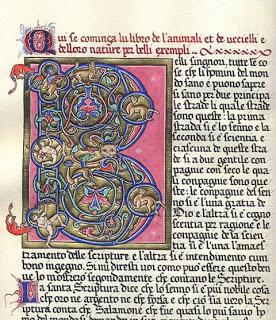 Qui se cominça lu libro de l'animali et de uccielli e
delloro nature per belli exempli.
Belli signori, tutte le co
se che li homini del mon
do sano e puono sapre
si sano per due principa
li strade li quali strade
sono queste: la prima
strada si e lo senno e la
seconda si e scientia. e
ciascuna de queste stra
de si a due gentile con
pagnie con seco le qua
li conpagnie sono que
ste: le conpagnie del sen
no si e l'una gratia de
Dio e l'altra si e cogno
sentia per ragione e le
conpagnie de la scien
tia si e l'una l'amaes
tramento delle scripture e l'altra si e intendimento cum
bono ingegno. Si mi diresti uno: como puo essere questo ben
ve lo mostrero secondamente che contano le Scripture.
La santa Scriptura dice che lo senno si e piu nobile cosa
che oro ne argento ne che forsa e che cio sia vero la Scri
ptura conta che Salamone che fue quasi lo piu sano ho